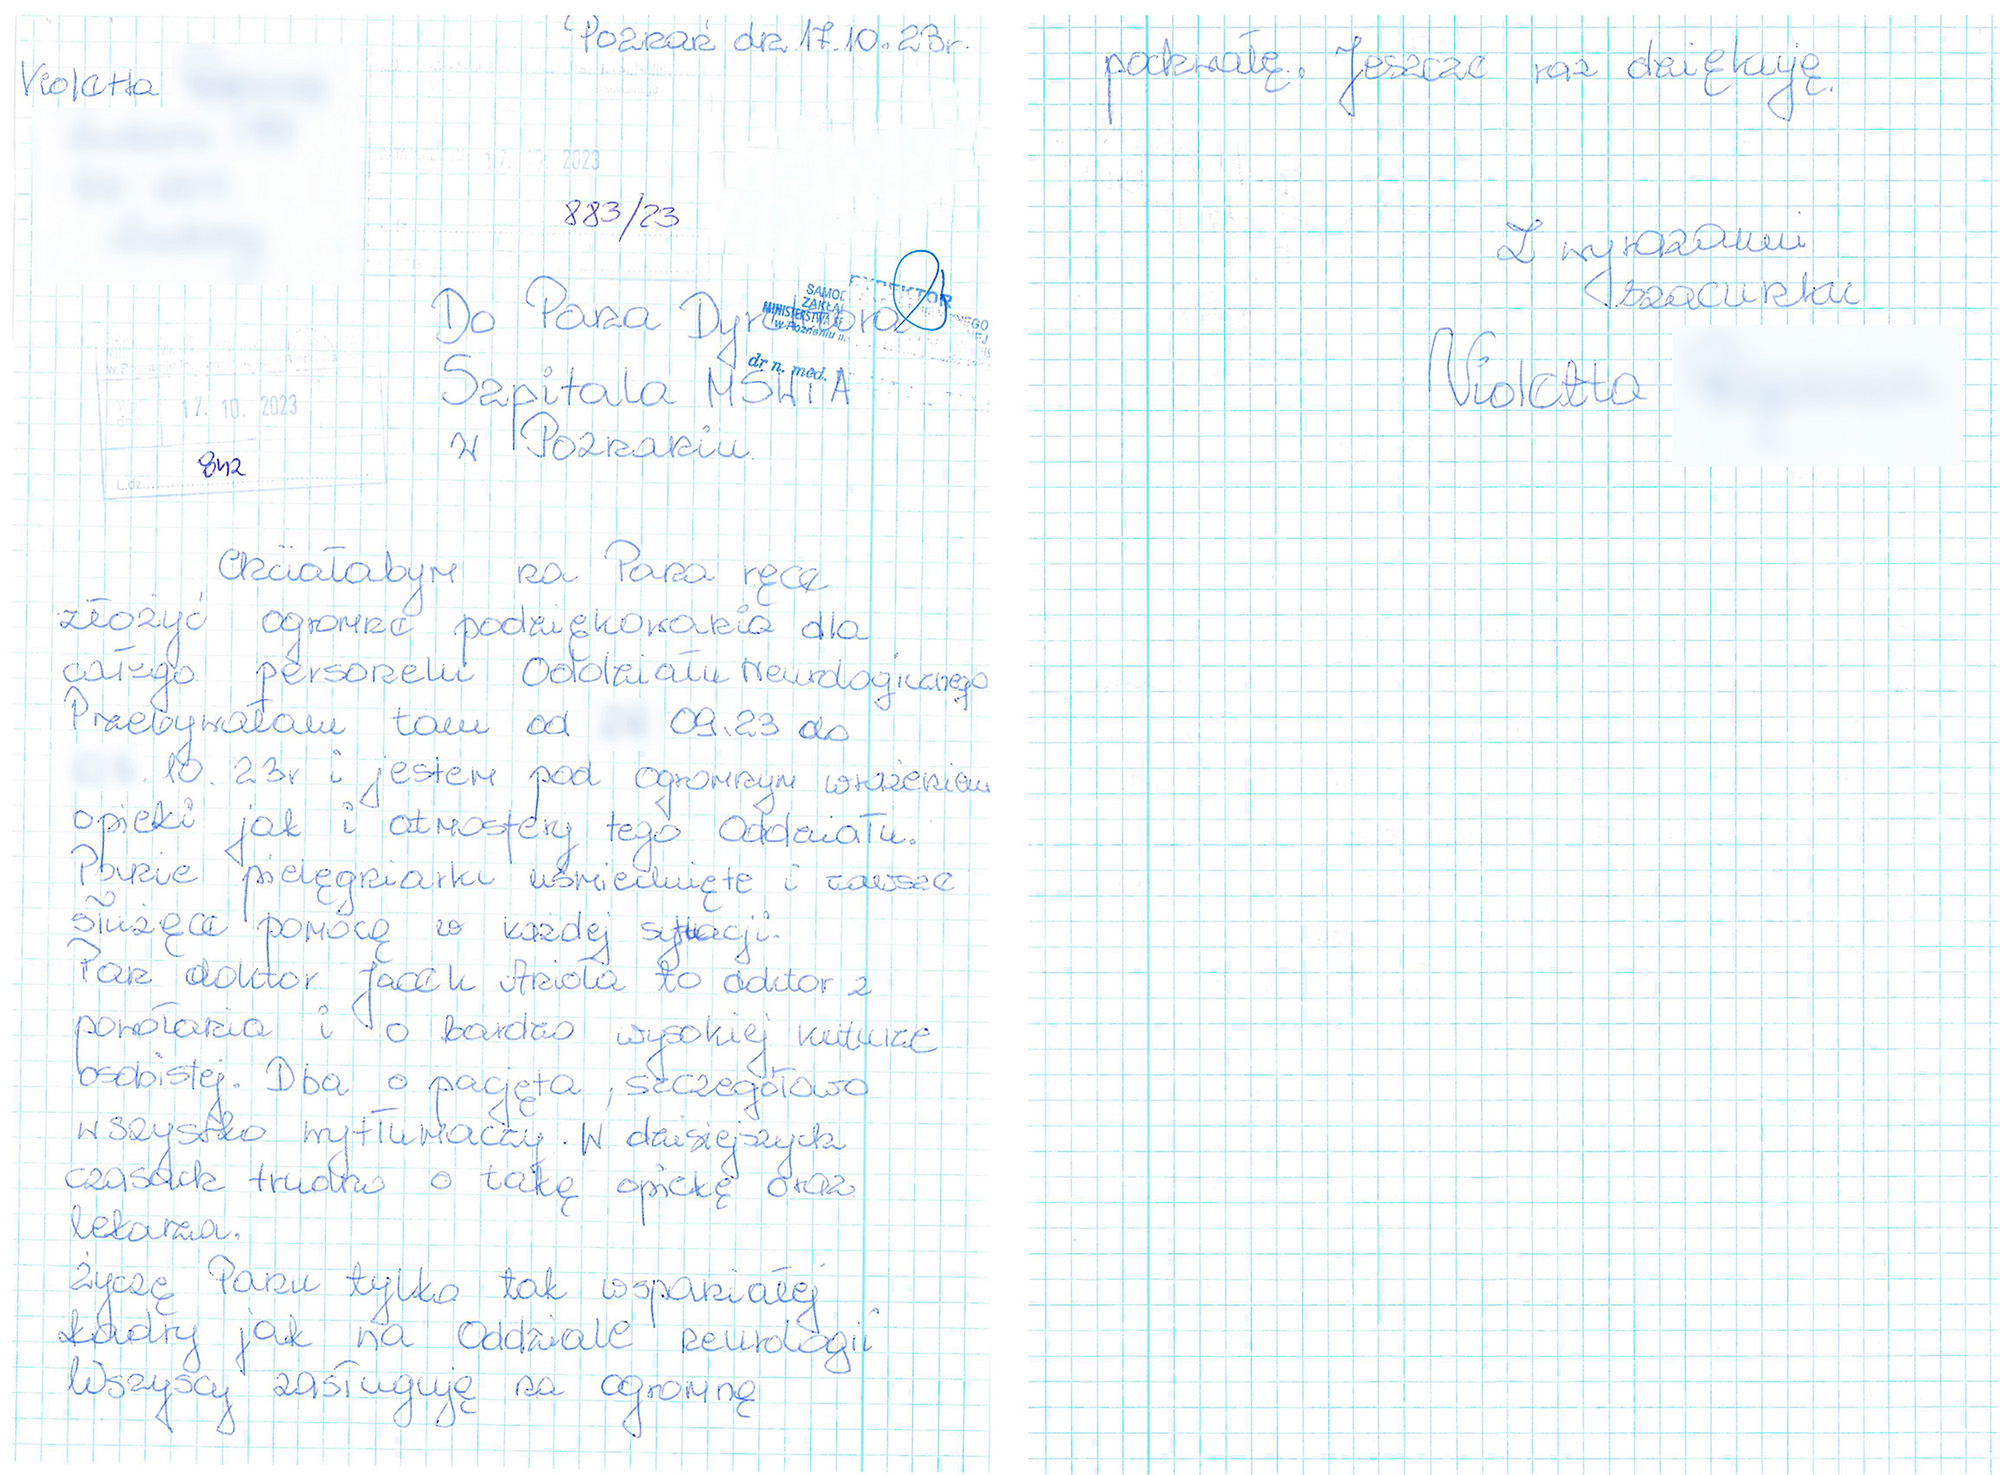 Poznań dn. 17.10.23r.
Violetta
17. 2023
883/23
Do Pana Dyrektora
SAMOD
ZAKŁA
MINISTERSTWA
w Poznaniu
DYREKTOR
NEGO
dr n. med.
Szpitala MSWiA
w Poznaniu
17. 10. 2023
842
L.dz.
Chciałabym na Pana ręcę
złożyć ogromne podziękowania dla
całego personelu Oddziału Neurologicznego
Przebywałam tam od 09.23 do
10.23r i jestem pod ogromnym wrażeniem
opieki jak i atmosfery tego Oddziału.
Panie pielęgniarki uśmiechnięte i zawsze
służęce pomocę w każdej sytuacji.
Pan doktor Jacek Anioła to doktor z
powołania i o bardzo wysokiej kulturze
osobistej. Dba o pacjęta, szczegółowo
wszystko wytłumaczy. W dzisiejszych
czasach trudno o takę opiekę oraz
lekarza.
Życzę Panu tylko tak wspaniałej
kadry jak na Oddziale neurologii
Wszyscy zasługuję na ogromnę
pochwałę. Jeszcze raz dziękuję.
Z wyrazami
szacunku
Violetta